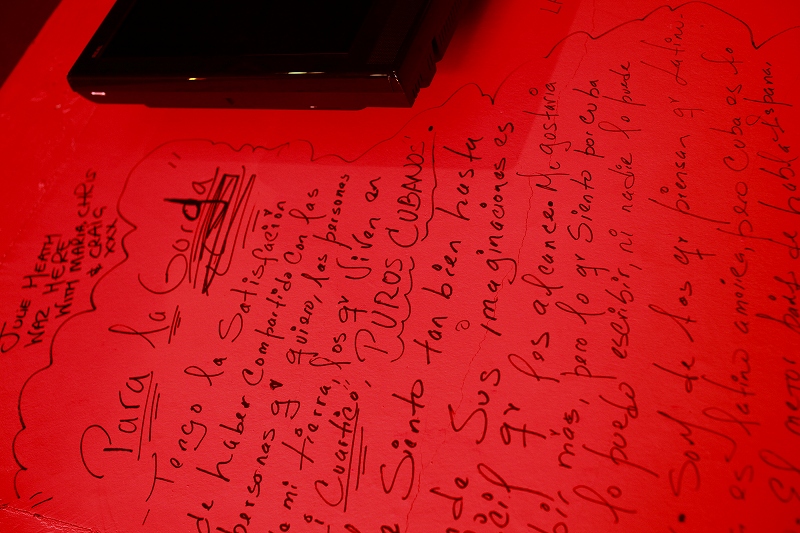 JULIE HEATH
WAZ HERE
WITH MARIA CHRIS
& CRAIG
XXX
"Para la Gorda
- Tengo la Satisfación
de haber compartido con las
personas q quiero, las personas
de mi tierra, los qr Viven en
Cuartico", PUROS CUBANOS.
Siento tan bien hasta
de Sus imaginaciones es
qr los alcance. Me gostaria
más, pero lo qr Siento por cuba
lo puedo escribir, ni nadie lo puede
Som de los qr piensan qr Latino.
es latino america, pero Cuba es lo
El mejor país de habla España.